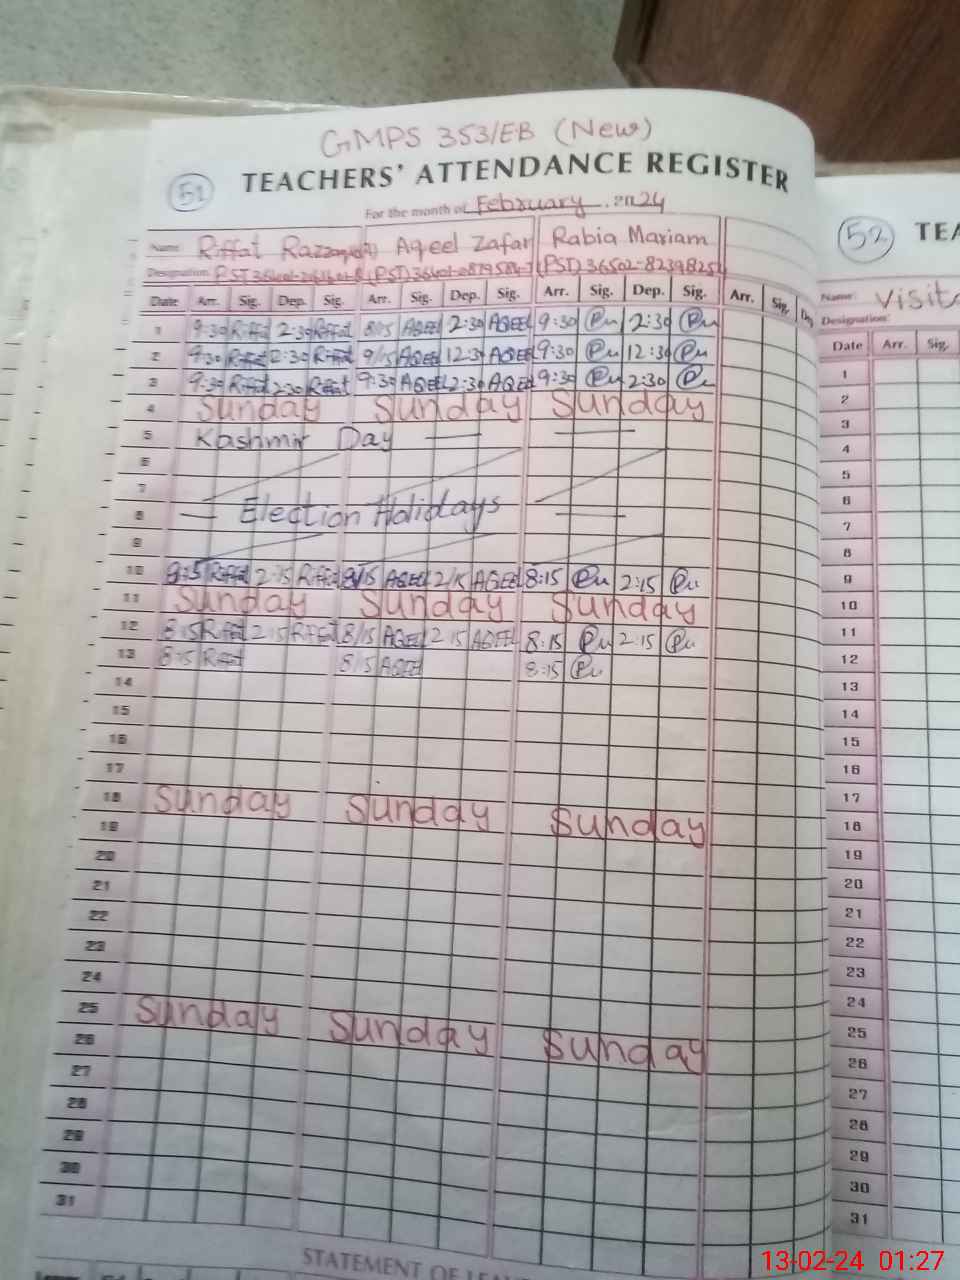 GMPS 353/EB (New)
51 TEACHERS' ATTENDANCE REGISTER
For the month of February 2024
Name: Riffat Aqeel Zafar Rabia Mariam
Designation: (PST)
Date Arr. Sig. Dep. Sig. Arr. Sig. Dep. Sig. Arr. Sig. Dep. Sig. Arr. Sig.
1 9:30 Riffat 2:30 Riffat 8:15 AQEEL 2:30 AQEEL 9:30 2:30
2 9:30 Riffat 2:30 Riffat 9/15 AQEEL 12:30 AQEEL 9:30 12:30
3 9:30 Riffat 2:30 Riffat 9:30 AQEEL 2:30 AQEEL 9:30 2:30
4 Sunday Sunday Sunday
5 Kashmir Day
6
7
8 Election Holidays
9
10 Riffat 2:15 Riffat 8/15 AQEEL 2/15 AQEEL 8:15 2:15
11 Sunday Sunday Sunday
12 8:15 Riffat 2:15 Riffat 8/15 AQEEL 2:15 AQEEL 8:15 2:15
13 8:15 Riffat 8/15 AQEEL 8:15
14
15
16
17
18 Sunday Sunday Sunday
19
20
21
22
23
24
25 Sunday Sunday Sunday
26
27
28
29
30
31
STATEMENT OF
52 TEA
Name:
Designation:
Date Arr. Sig.
1
2
3
4
5
6
7
8
9
10
11
12
13
14
15
16
17
18
19
20
21
22
23
24
25
26
27
28
29
30
31
13-02-24 01:27